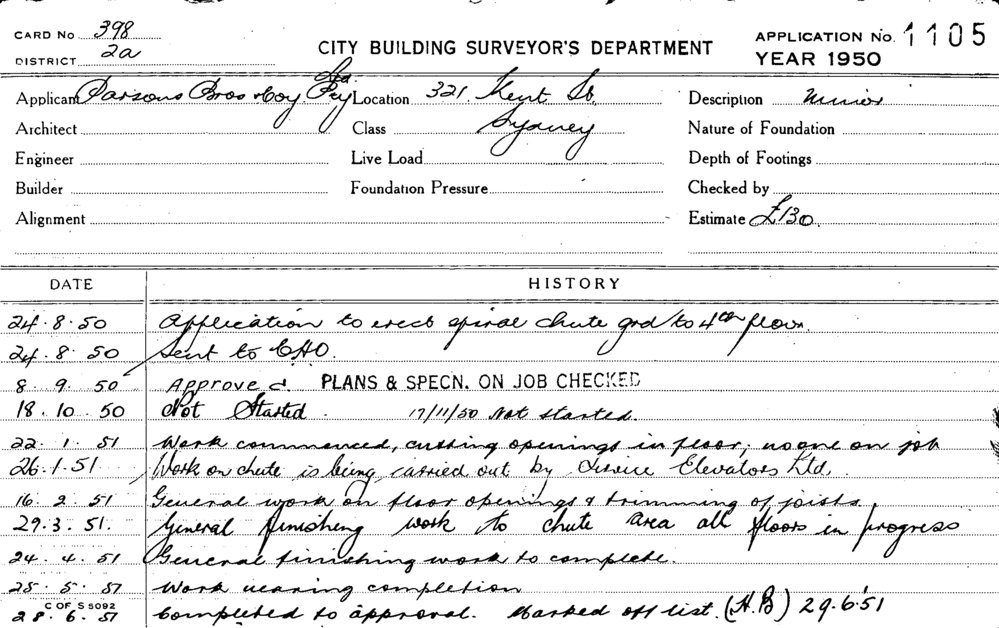 CARD No 398
DISTRICT 2a
CITY BUILDING SURVEYOR'S DEPARTMENT
APPLICATION No. 1105
YEAR 1950
Applicant Parsons Bros & Coy Pty Ltd. Location 321 Kent St. Description Minor
Architect Class Sydney Nature of Foundation
Engineer Live Load Depth of Footings
Builder Foundation Pressure Checked by
Alignment Estimate £130
DATE HISTORY
24.8.50 Application to erect spiral chute grd to 4th floor.
24.8.50 Sent to CHO.
8.9.50 Approved PLANS & SPECN. ON JOB CHECKED
18.10.50 Not Started. 17/11/50 Not started.
22.1.51 Work commenced, cutting openings in floor; no one on job
26.1.51 Work on chute is being carried out by Service Elevators Ltd.
16.2.51 General work on floor openings & trimming of joists.
29.3.51. General finishing work to chute area all floors in progress
24.4.51 General finishing work to complete.
25.5.51 Work nearing completion
28.6.51 Completed to approval. Marked off list. (H.B) 29.6.51
C OF S 5092